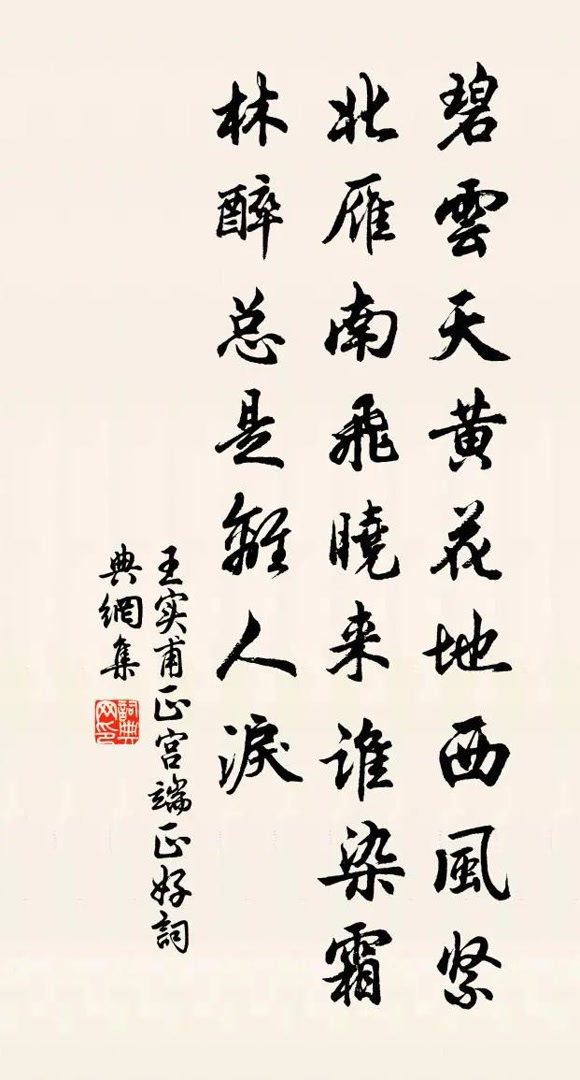 碧雲天黄花地西風紧
北雁南飛曉来谁染霜
林醉总是離人淚
王实甫正宫端正好詞
典網集
詞典网印